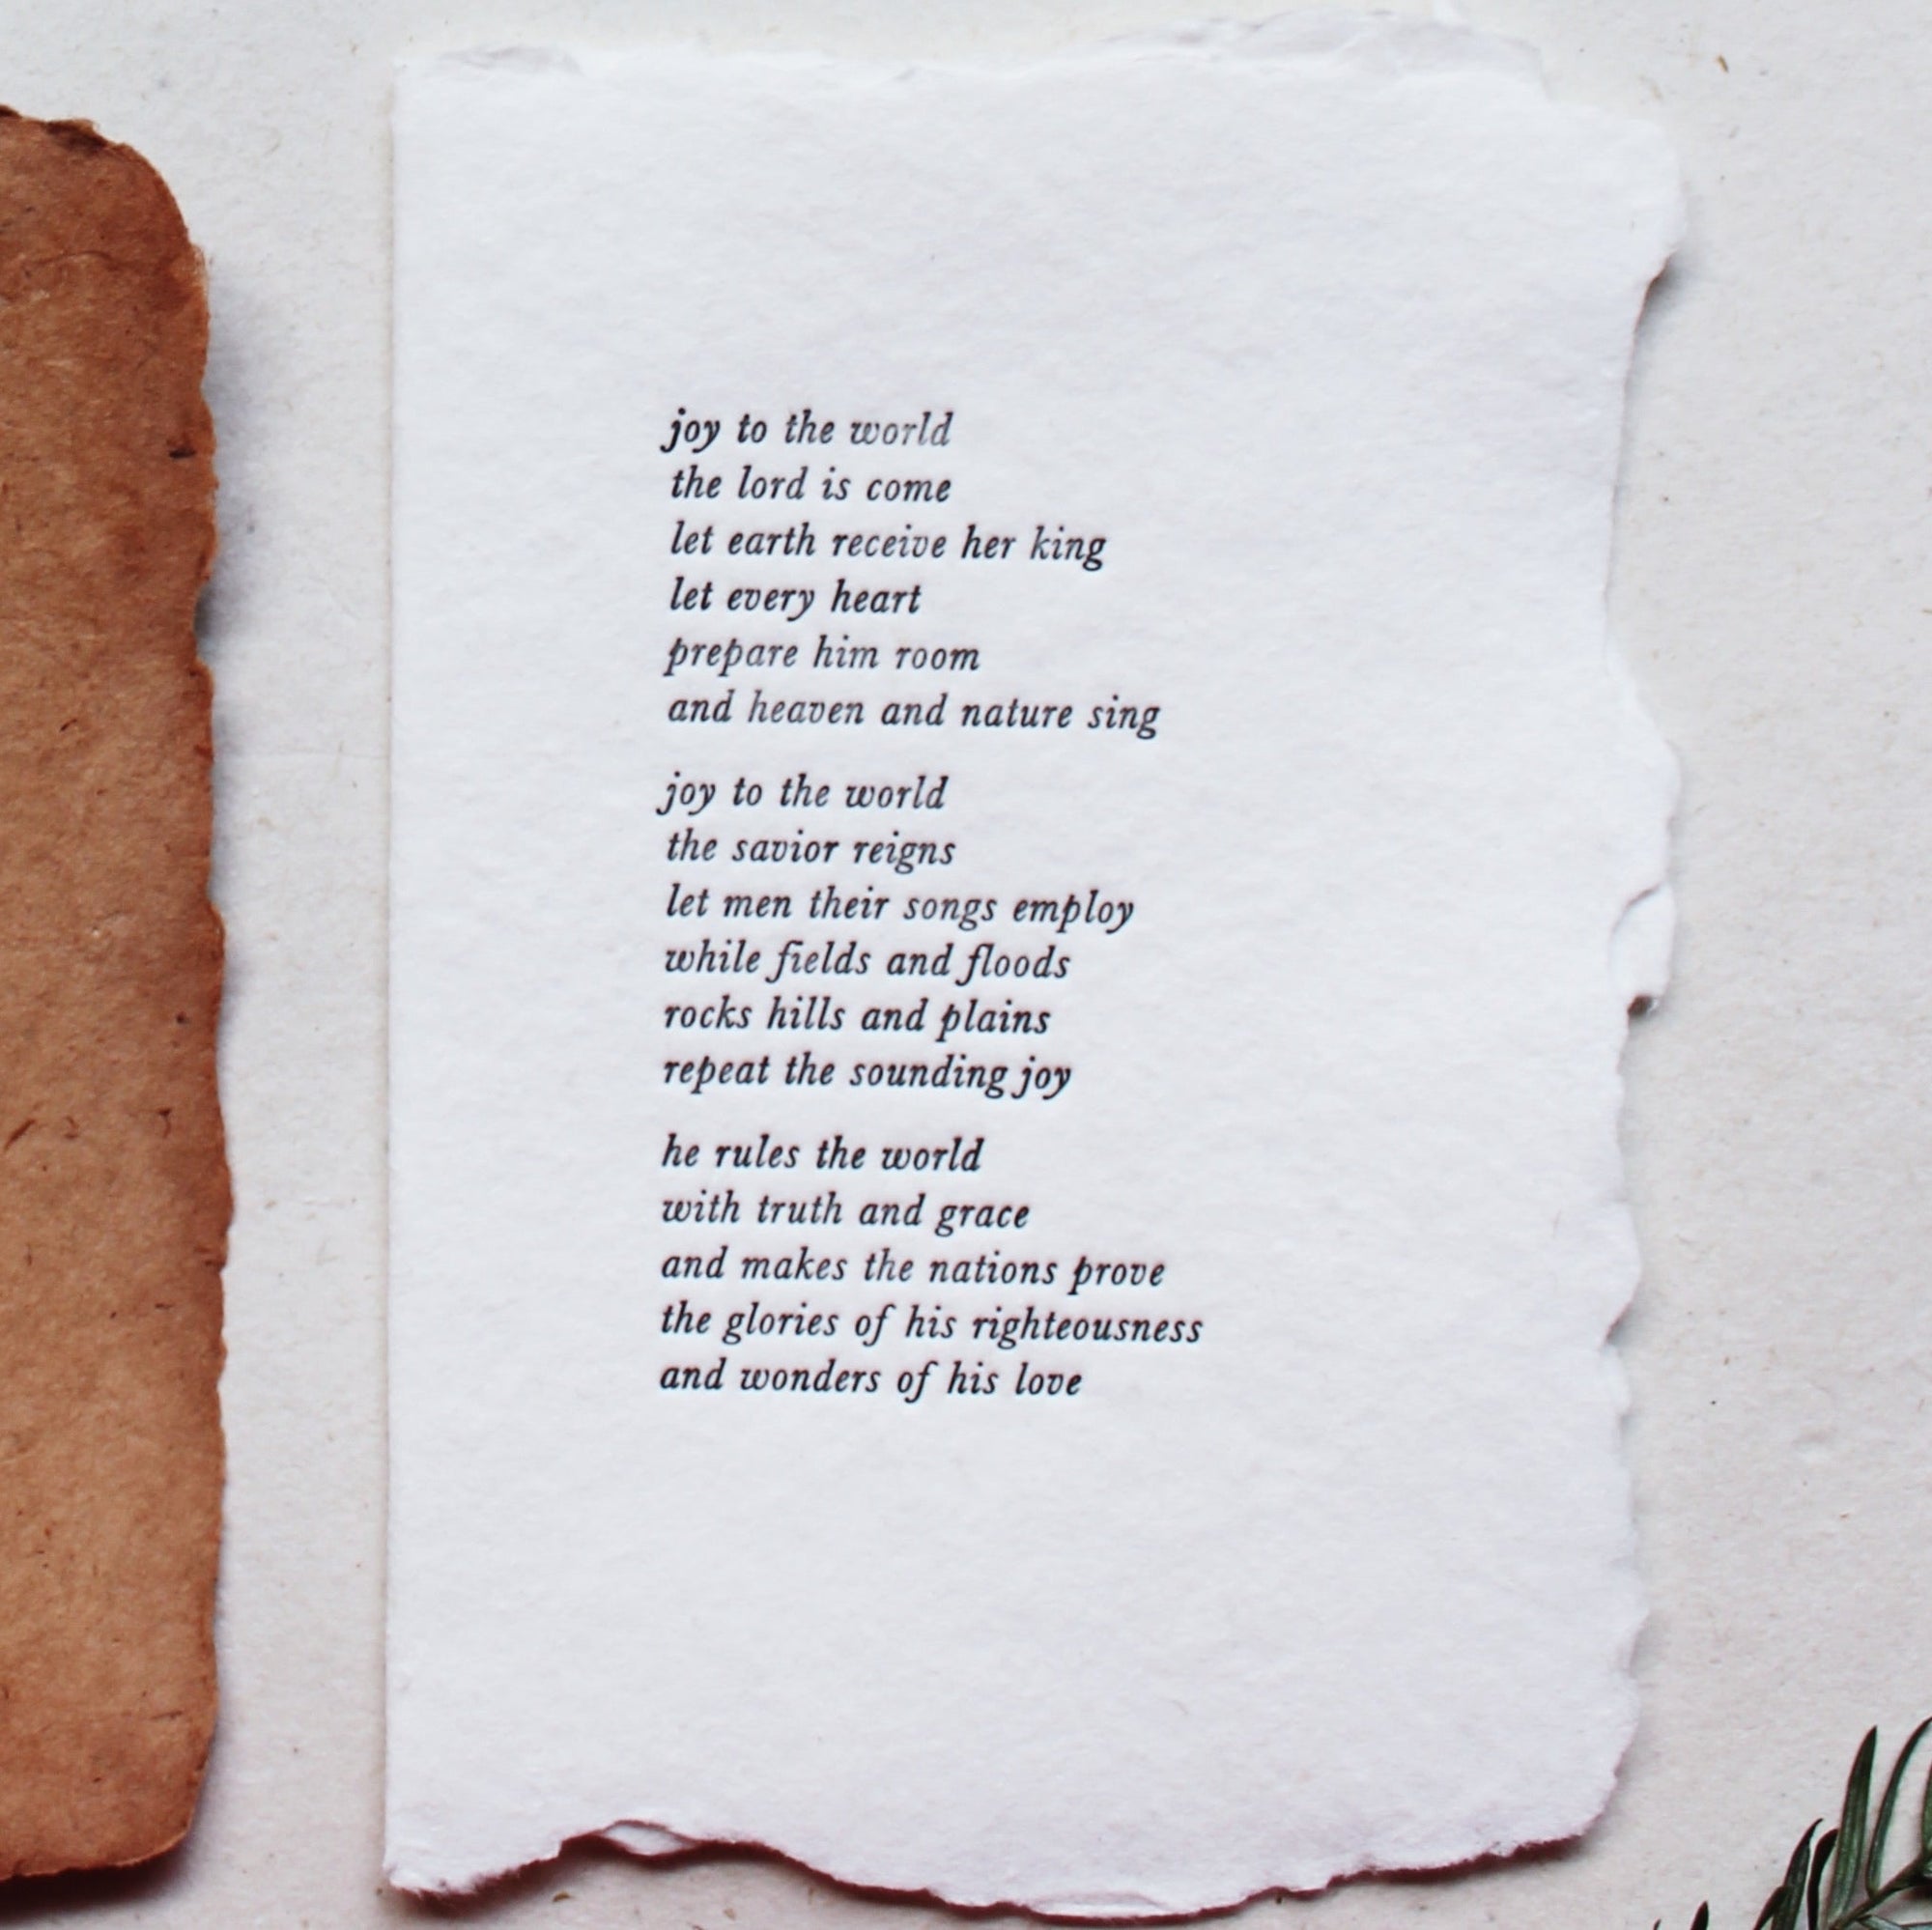 joy to the world
the lord is come
let earth receive her king
let every heart
prepare him room
and heaven and nature sing
joy to the world
the savior reigns
let men their songs employ
while fields and floods
rocks hills and plains
repeat the sounding joy
he rules the world
with truth and grace
and makes the nations prove
the glories of his righteousness
and wonders of his love